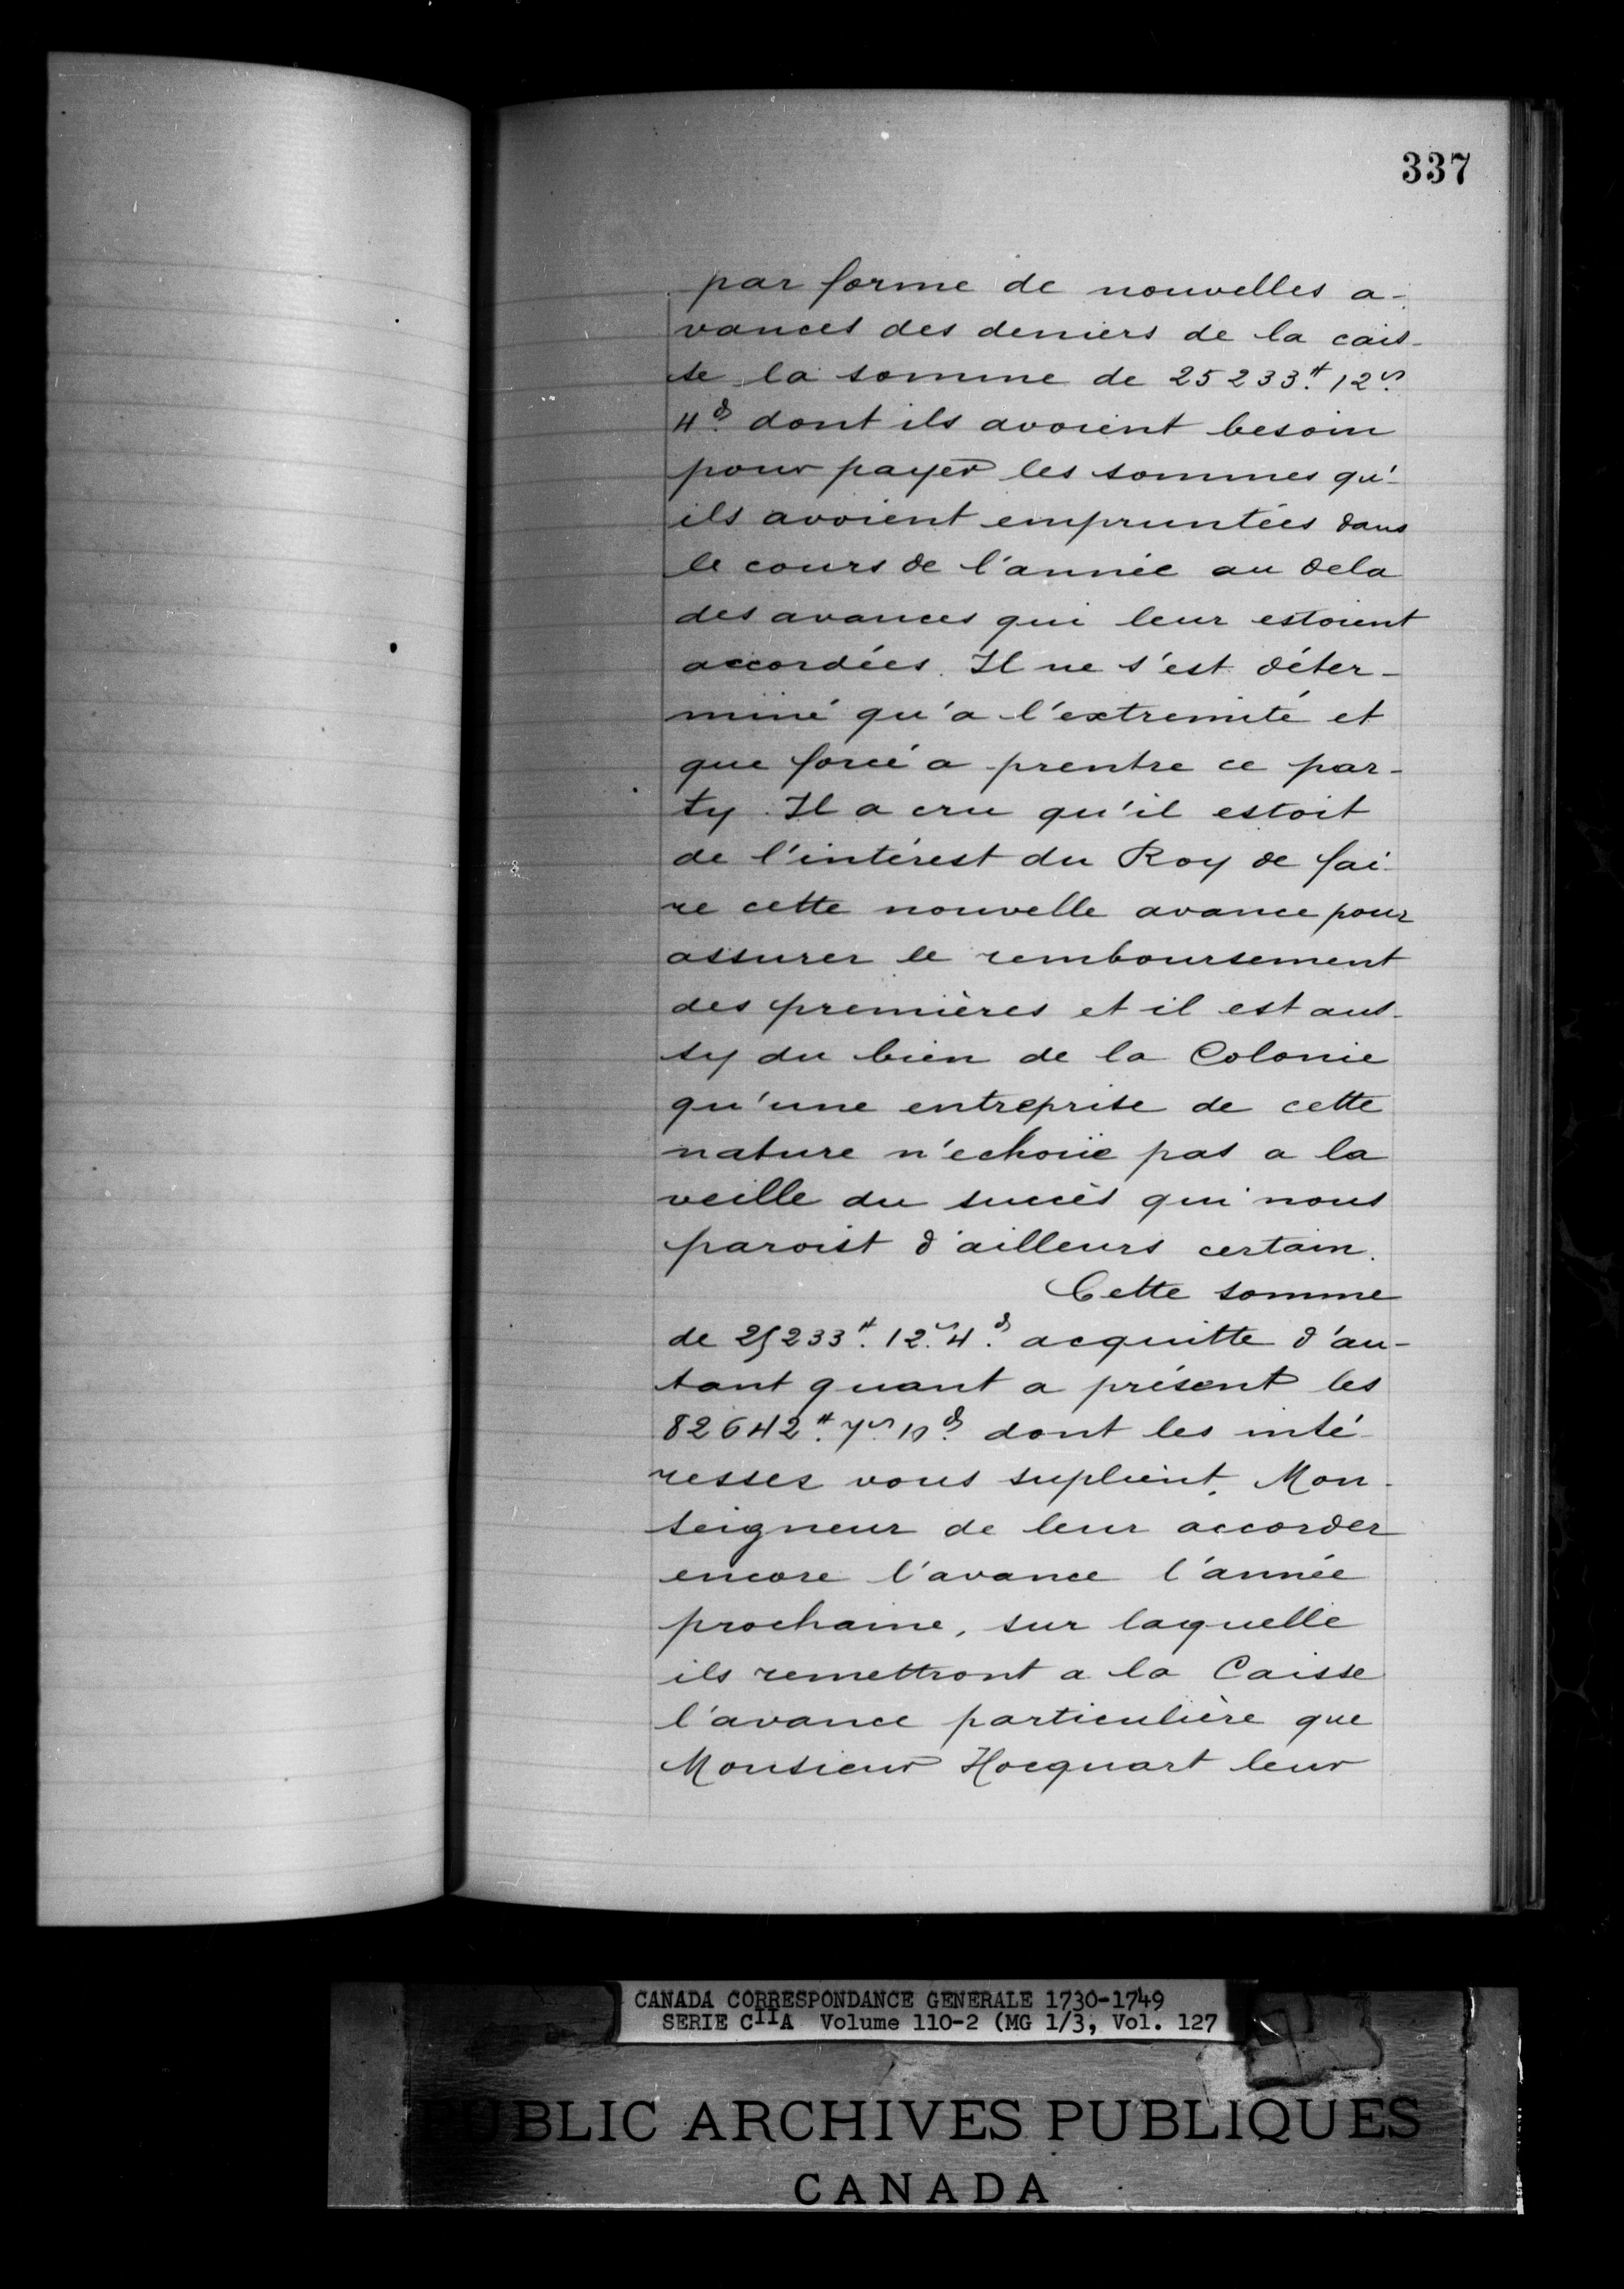 337
par forme de nouvelles a-
vances des deniers de la cais-
se la somme de 25233.# 12s.
4d. dont ils avoient besoin
pour payer les sommes qu'-
ils avoient empruntées dans
le cours de l'année au dela
des avances qui leur estoient
accordées. Il ne s'est déter-
miné qu'a l'extremité et
que forcé a prentre ce par-
ty. Il a cru qu'il estoit
de l'intérest du Roy de fai-
re cette nouvelle avance pour
assurer le remboursement
des premières et il est aus-
sy du bien de la Colonie
qu'une entreprise de cette
nature n'echoüe pas a la
veille du succès qui nous
paroist d'ailleurs certain.
Cette somme
de 25233.# 12.s 4.d acquitte d'au-
tant quant a présent les
82642.# 7s. 10d. dont les inté-
ressez vous suplient, Mon-
seigneur de leur accorder
encore l'avance l'année
prochaine, sur laquelle
ils remettront a la Caisse
l'avance particulière que
Monsieur Hocquart leur
CANADA CORRESPONDANCE GENERALE 1730-1749
SERIE CIIA Volume 110-2 (MG 1/3, Vol. 127
PUBLIC ARCHIVES PUBLIQUES
CANADA